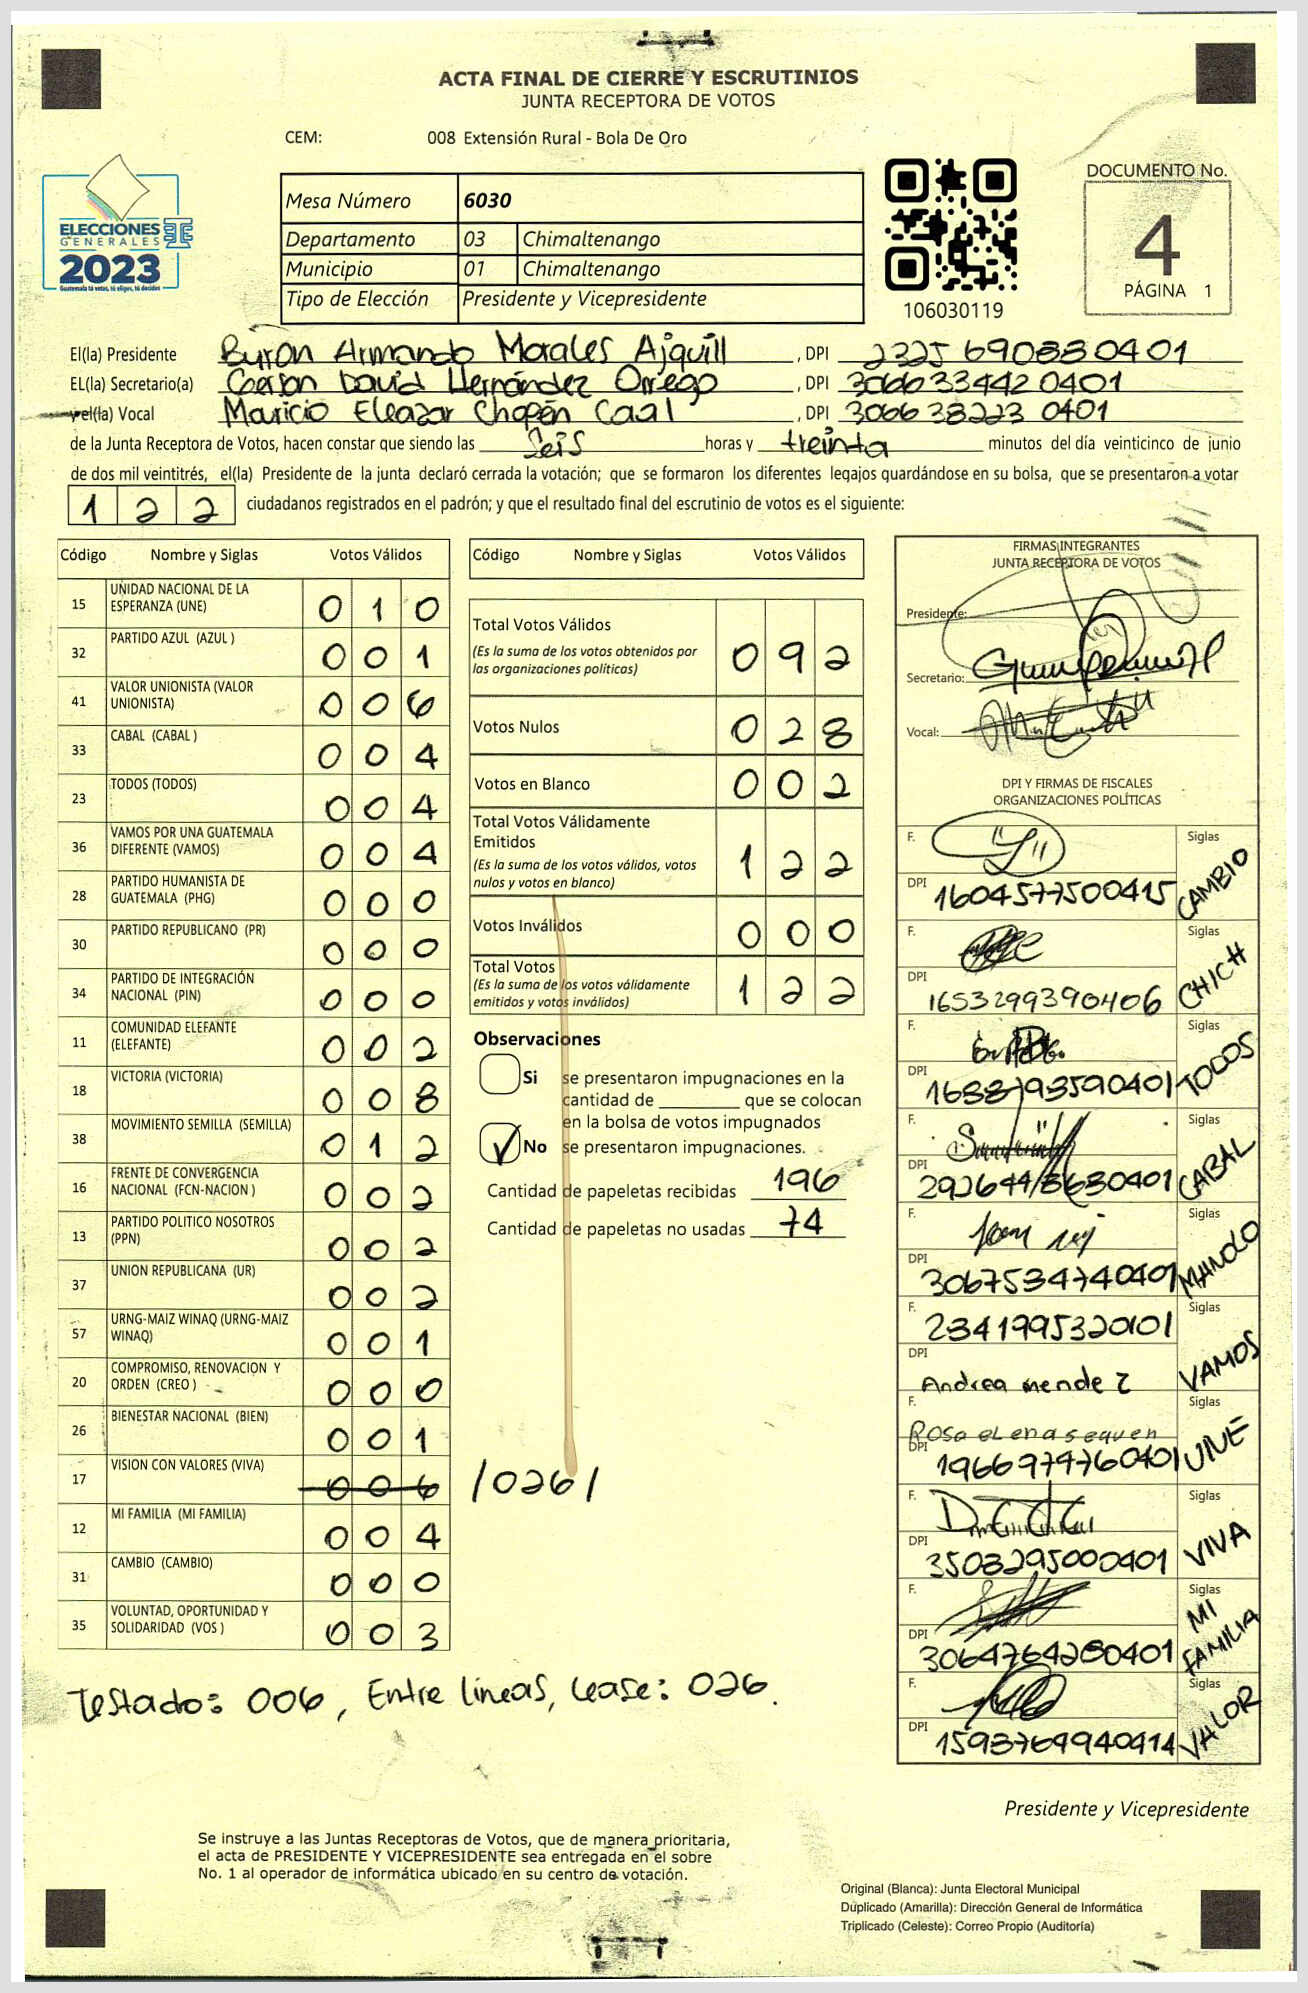 ACTA FINAL DE CIERRE Y ESCRUTINIOS
JUNTA RECEPTORA DE VOTOS
CEM: 008 Extensión Rural - Bola De Oro
ELECCIONES
GENERALES
2023
Guatemala tú votas, tú eliges, tú decides
Mesa Número 6030
Departamento 03 Chimaltenango
Municipio 01 Chimaltenango
Tipo de Elección Presidente y Vicepresidente
106030119
DOCUMENTO No.
4
PÁGINA 1
El(la) Presidente Byron Armando Morales Ajquill, DPI 2325 69088 0401
EL(la) Secretario(a) Gerson David Hernández Orrego, DPI 3066334420401
y el(la) Vocal Mauricio Eleazar Chopén Caal, DPI 306638223 0401
de la Junta Receptora de Votos, hacen constar que siendo las seis horas y treinta minutos del día veinticinco de junio
de dos mil veintitrés, el(la) Presidente de la junta declaró cerrada la votación; que se formaron los diferentes legajos guardándose en su bolsa, que se presentaron a votar
122 ciudadanos registrados en el padrón; y que el resultado final del escrutinio de votos es el siguiente:
Código Nombre y Siglas Votos Válidos
15 UNIDAD NACIONAL DE LA ESPERANZA (UNE) 010
32 PARTIDO AZUL (AZUL ) 001
41 VALOR UNIONISTA (VALOR UNIONISTA) 006
33 CABAL (CABAL ) 004
23 TODOS (TODOS) 004
36 VAMOS POR UNA GUATEMALA DIFERENTE (VAMOS) 004
28 PARTIDO HUMANISTA DE GUATEMALA (PHG) 000
30 PARTIDO REPUBLICANO (PR) 000
34 PARTIDO DE INTEGRACIÓN NACIONAL (PIN) 000
11 COMUNIDAD ELEFANTE (ELEFANTE) 002
18 VICTORIA (VICTORIA) 008
38 MOVIMIENTO SEMILLA (SEMILLA) 012
16 FRENTE DE CONVERGENCIA NACIONAL (FCN-NACION ) 002
13 PARTIDO POLITICO NOSOTROS (PPN) 002
37 UNION REPUBLICANA (UR) 002
57 URNG-MAIZ WINAQ (URNG-MAIZ WINAQ) 001
20 COMPROMISO, RENOVACION Y ORDEN (CREO ) 000
26 BIENESTAR NACIONAL (BIEN) 001
17 VISION CON VALORES (VIVA) 006 /026/
12 MI FAMILIA (MI FAMILIA) 004
31 CAMBIO (CAMBIO) 000
35 VOLUNTAD, OPORTUNIDAD Y SOLIDARIDAD (VOS ) 003
Testado: 006, Entre líneas, Lease: 026.
Código Nombre y Siglas Votos Válidos
Total Votos Válidos 092
(Es la suma de los votos obtenidos por
las organizaciones políticas)
Votos Nulos 028
Votos en Blanco 002
Total Votos Válidamente
Emitidos 122
(Es la suma de los votos válidos, votos
nulos y votos en blanco)
Votos Inválidos 000
Total Votos 122
(Es la suma de los votos válidamente
emitidos y votos inválidos)
Observaciones
Si se presentaron impugnaciones en la
cantidad de ______ que se colocan
en la bolsa de votos impugnados
No se presentaron impugnaciones.
Cantidad de papeletas recibidas 196
Cantidad de papeletas no usadas 74
FIRMAS INTEGRANTES
JUNTA RECEPTORA DE VOTOS
Presidente:
Secretario:
Vocal:
DPI Y FIRMAS DE FISCALES
ORGANIZACIONES POLÍTICAS
F. Siglas
DPI 1604577500415 CAMBIO
F. Siglas
DPI 1653299390406 CHICH
F. Siglas
DPI TODOS
F. Siglas
DPI CABAL
F. Siglas
DPI 3067534740401 MANOLO
F. 2341995320101 Siglas
DPI Andrea mendez VAMOS
F. Rosa eLena sequen Siglas
DPI 1966979760401 UNE
F. Siglas
DPI 3503295000401 VIVA
F. Siglas
DPI 3064764280401 MI FAMILIA
F. Siglas
DPI 1593769940414 VALOR
Presidente y Vicepresidente
Se instruye a las Juntas Receptoras de Votos, que de manera prioritaria,
el acta de PRESIDENTE Y VICEPRESIDENTE sea entregada en el sobre
No. 1 al operador de informática ubicado en su centro de votación.
Original (Blanca): Junta Electoral Municipal
Duplicado (Amarilla): Dirección General de Informática
Triplicado (Celeste): Correo Propio (Auditoría)